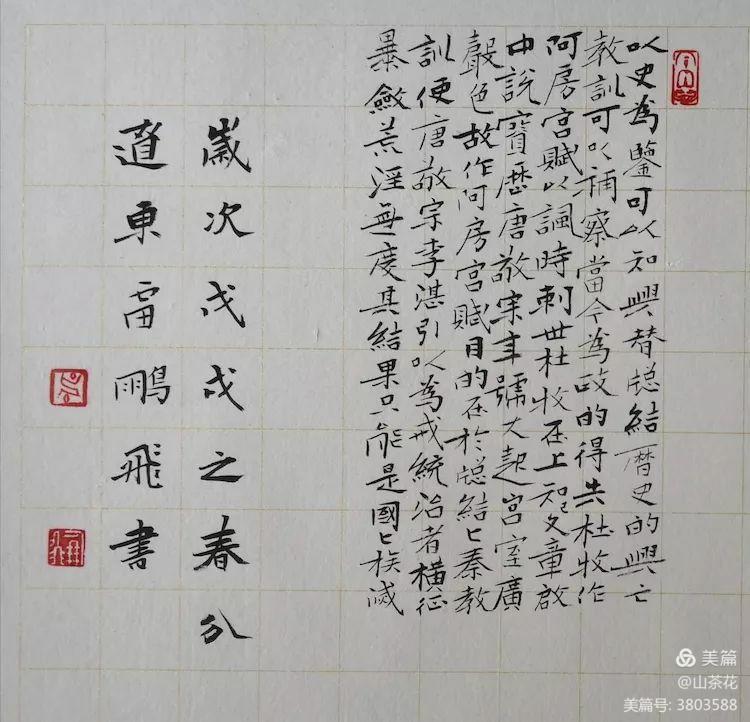 以史為鑒可以知興替總結曆史的興亡
教訓可以補察當今為政的得失杜牧作
阿房宮賦以諷時刺世杜牧在上知己文章啟
中說寶歷唐敬宗年號大起宮室廣
聲色故作阿房宮賦目的在於總結亡秦教
訓使唐敬宗李湛引以為戒統治者橫征
暴斂荒淫無度其結果只能是國亡族滅
歲次戊戌之春分
遼東雷鵬飛書
美篇
@山茶花
美篇号: 3803588